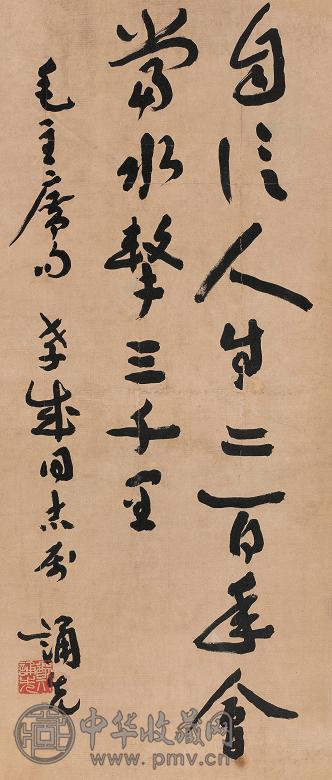 自信人生二百年會
當水擊三千里
毛主席句 成同志属 誦先
中华收藏网
www.pmv.cn